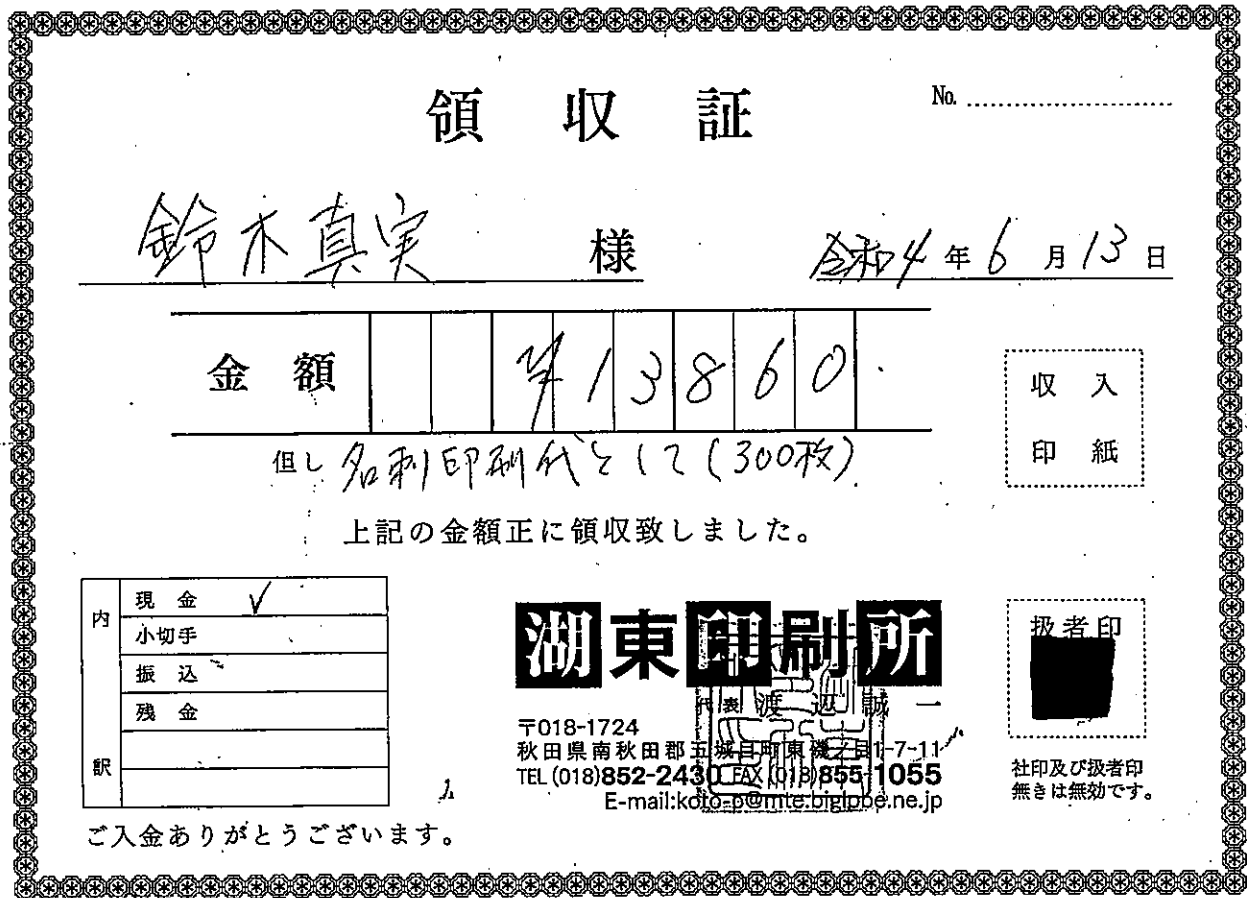 領収証
No.
鈴木真実 様
令和4年6月13日
金額 ¥13860
収入
印紙
但し 名刺印刷代として(300枚)
上記の金額正に領収致しました。
内訳
現金 ✓
小切手
振込
残金
湖東印刷所
代表 渡辺誠一
〒018-1724
秋田県南秋田郡五城目町東磯ノ目1-7-11
TEL(018)852-2430 FAX(018)855-1055
E-mail:koto-p@mte.biglobe.ne.jp
扱者印
社印及び扱者印
無きは無効です。
ご入金ありがとうございます。